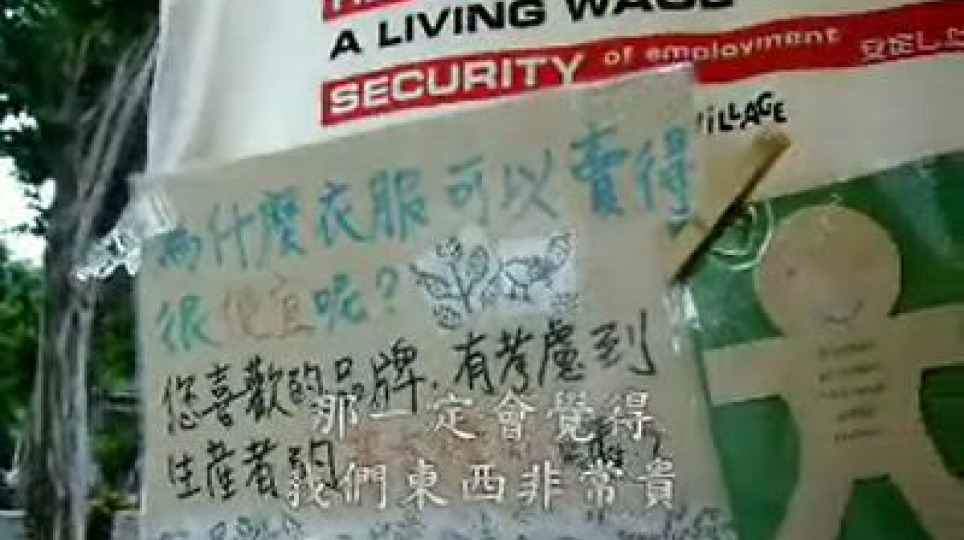 A LIVING WAGE
SECURITY of employment 安定した
VILLAGE
為什麼衣服可以賣得
很便宜呢?
您喜歡的品牌,有考慮到
生產者的
那一定會覺得
我們東西非常貴